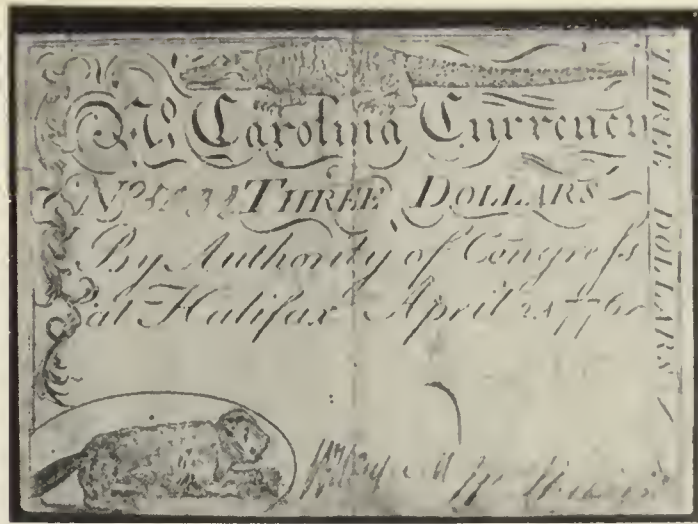 N. Carolina Currency
No THREE DOLLARS
By Authority of Congress
at Halifax April 2 1776
THREE DOLLARS